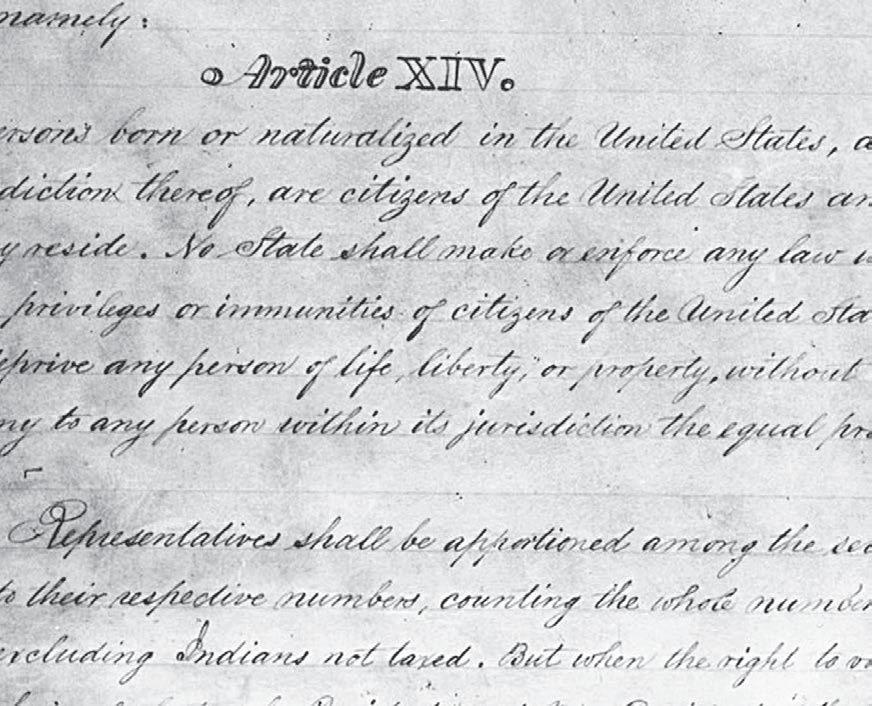 namely:
Article XIV.
ersons born or naturalized in the United States, a
diction thereof, are citizens of the United States an
y reside. No State shall make or enforce any law w
privileges or immunities of citizens of the United Sta
eprive any person of life, liberty, or property, without
ny to any person within its jurisdiction the equal pro
Representatives shall be apportioned among the sev
to their respective numbers, counting the whole number
excluding Indians not taxed. But when the right to vo